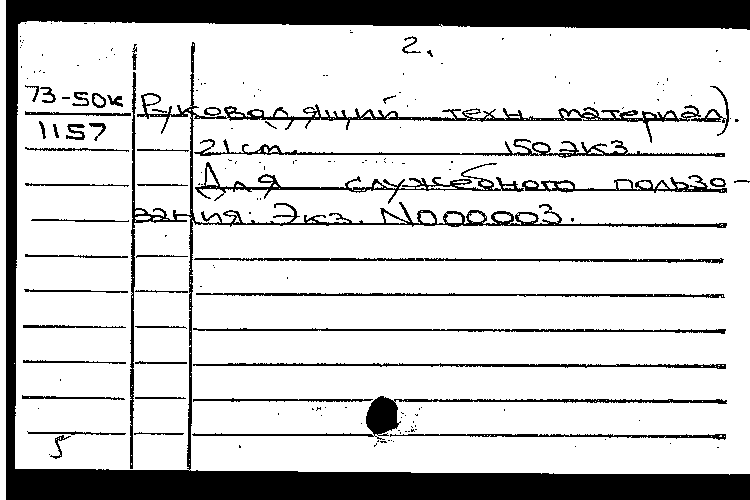 2.
73-50к Руководящий техн. материал).
1157
21 см. 150 экз.
Для служебного пользо-
вания. Экз. N000003.
5